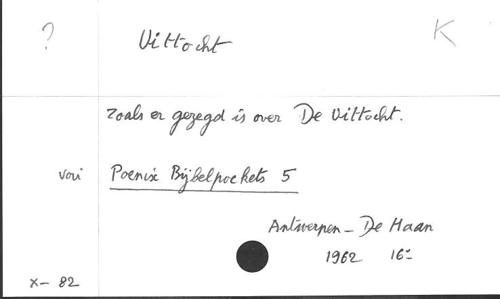 ?
Uittocht
K
Zoals er gezegd is over De Uittocht.
voir Poenix Bijbelpockets 5
Antwerpen - De Haan
1962 16-
X- 82